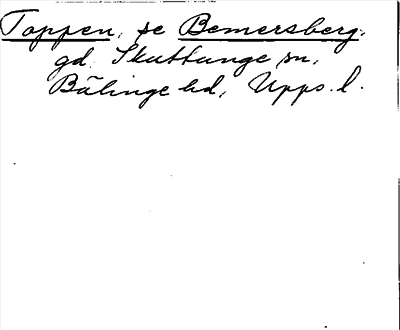 Toppen, se Bemersberg,
gd. Skuttunge sn,
Bälinge hd, Upps. l.